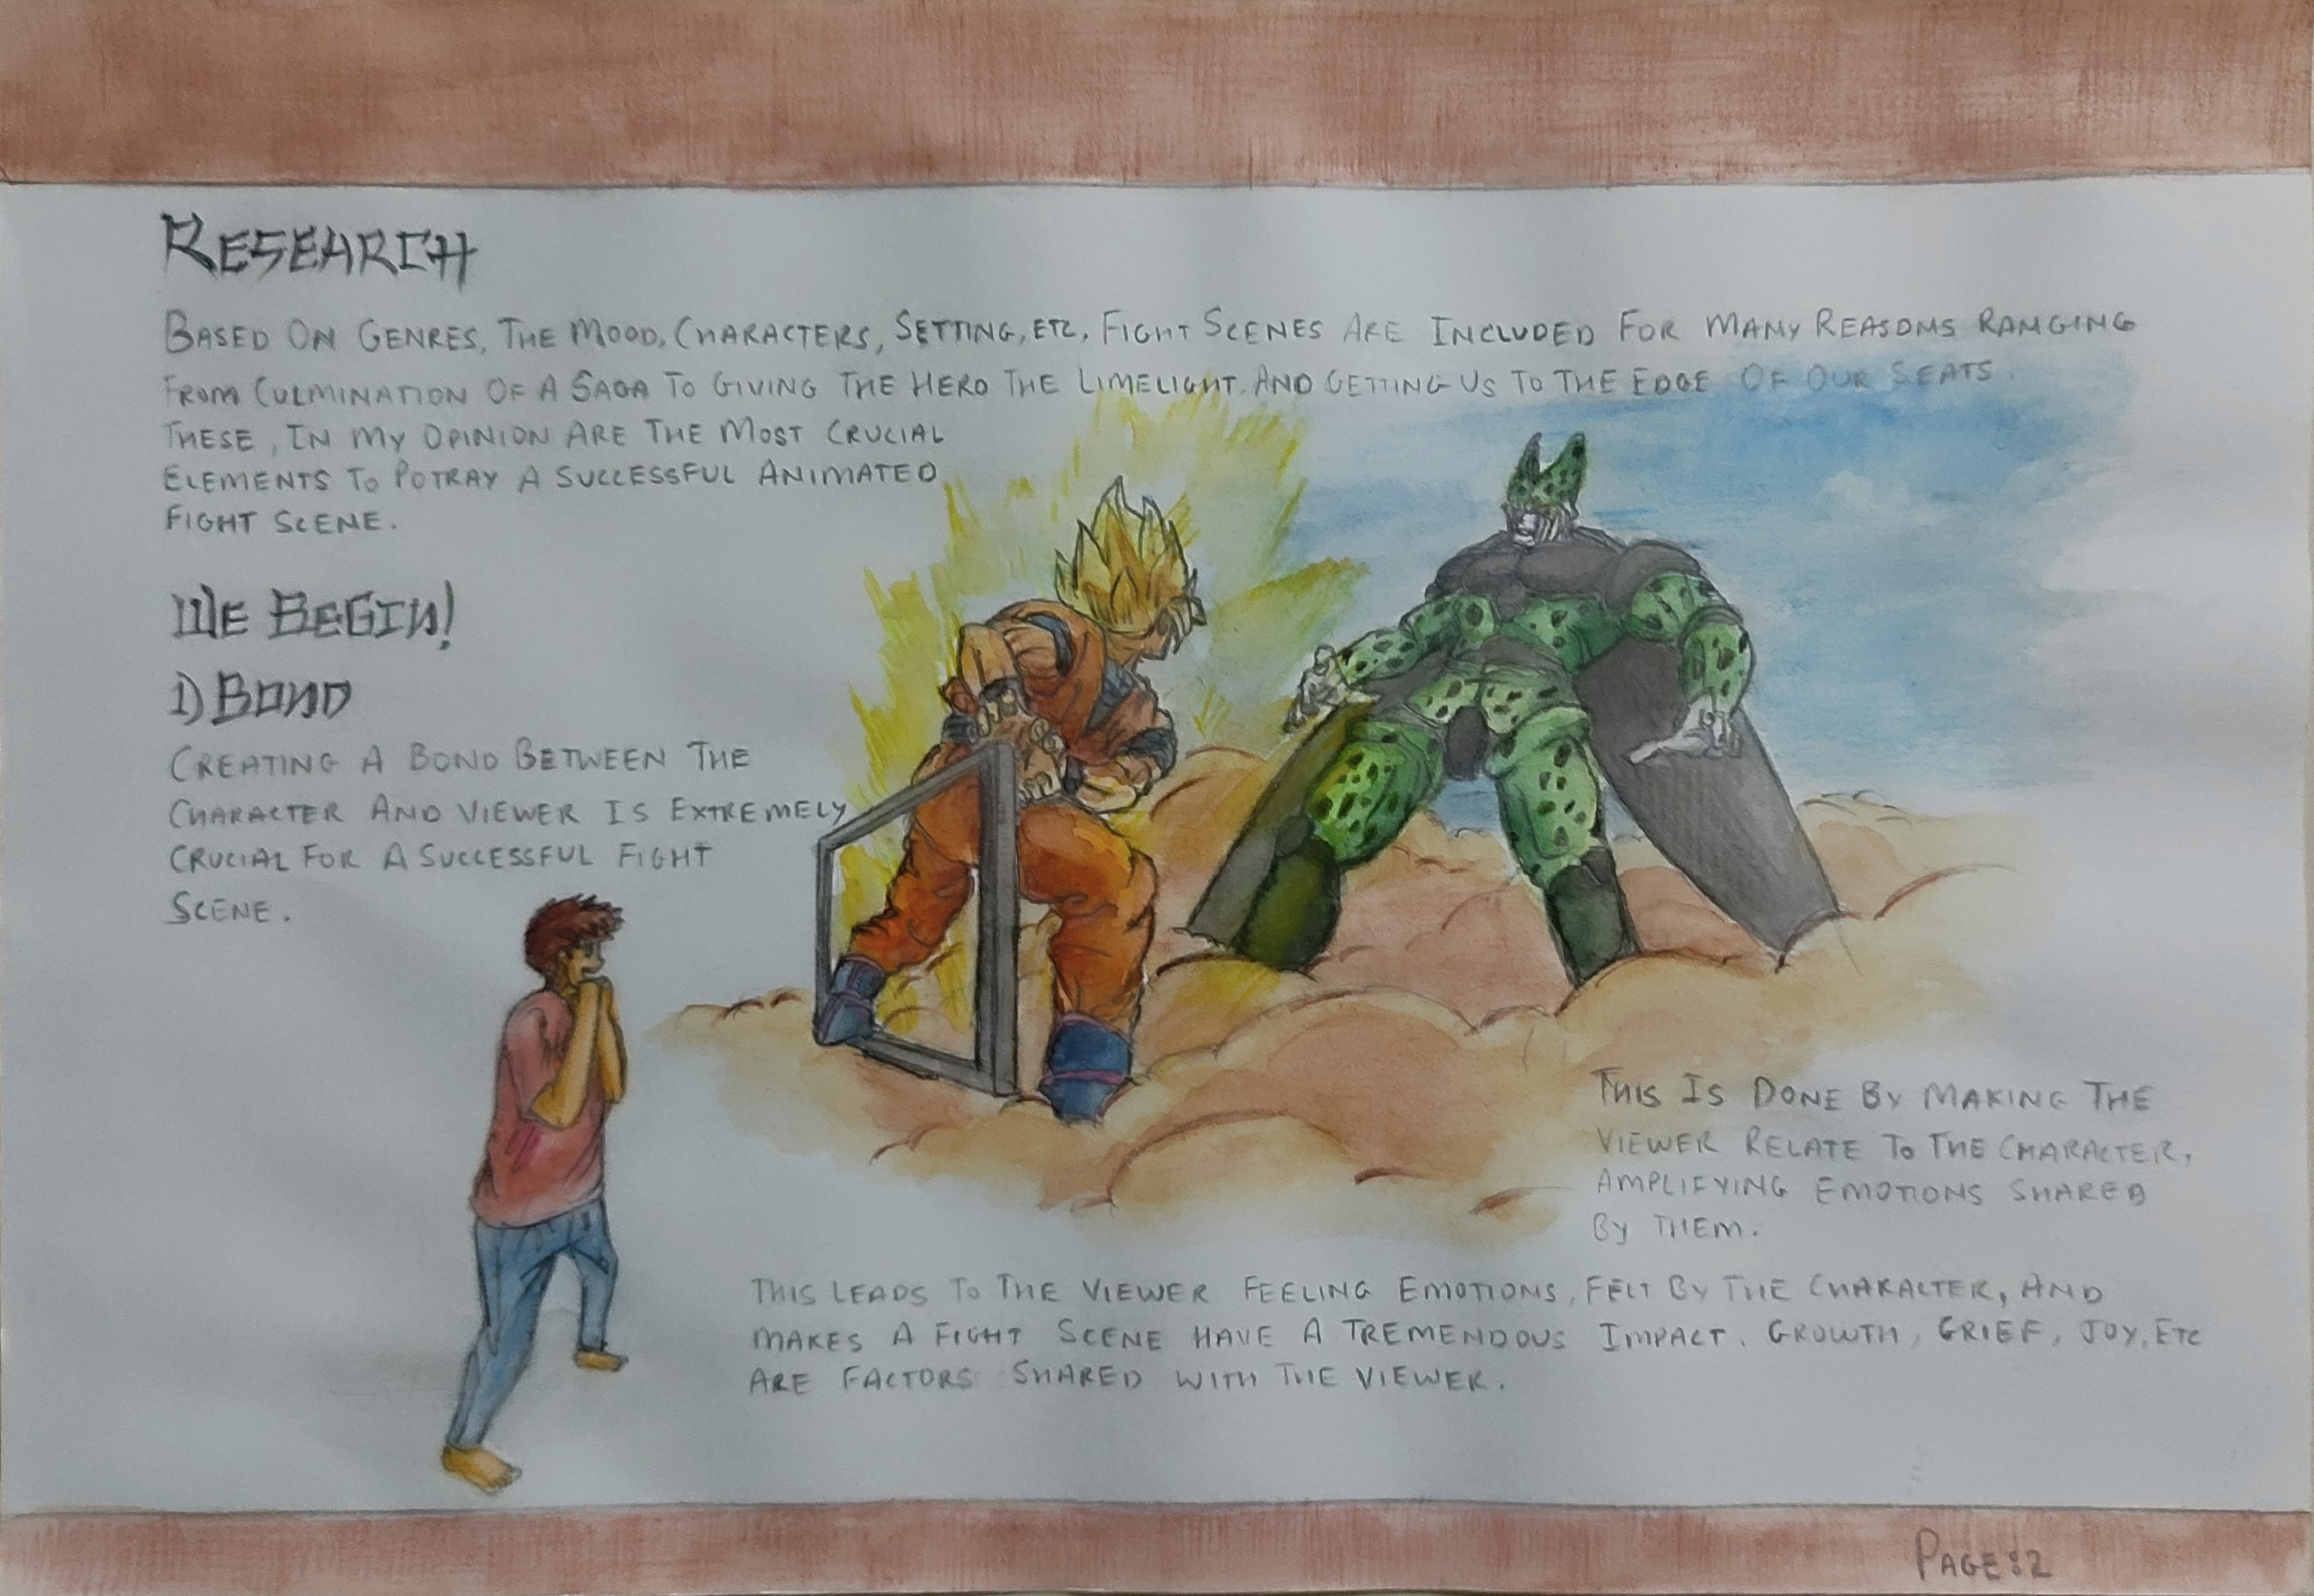 RESEARCH
BASED ON GENRES, THE MOOD, CHARACTERS, SETTING, ETC, FIGHT SCENES ARE INCLUDED FOR MANY REASONS RANGING
FROM CULMINATION OF A SAGA TO GIVING THE HERO THE LIMELIGHT. AND GETTING US TO THE EDGE OF OUR SEATS.
THESE, IN MY OPINION ARE THE MOST CRUCIAL
ELEMENTS TO POTRAY A SUCCESSFUL ANIMATED
FIGHT SCENE.
WE BEGIN!
1) BOND
CREATING A BOND BETWEEN THE
CHARACTER AND VIEWER IS EXTREMELY
CRUCIAL FOR A SUCCESSFUL FIGHT
SCENE.
THIS IS DONE BY MAKING THE
VIEWER RELATE TO THE CHARACTER,
AMPLIFYING EMOTIONS SHARED
BY THEM.
THIS LEADS TO THE VIEWER FEELING EMOTIONS, FELT BY THE CHARACTER, AND
MAKES A FIGHT SCENE HAVE A TREMENDOUS IMPACT. GROWTH, GRIEF, JOY, ETC
ARE FACTORS SHARED WITH THE VIEWER.
PAGE:2